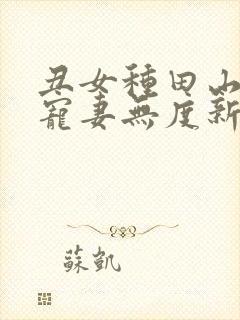 丑女種田山
寵妻無度新
蘇凱